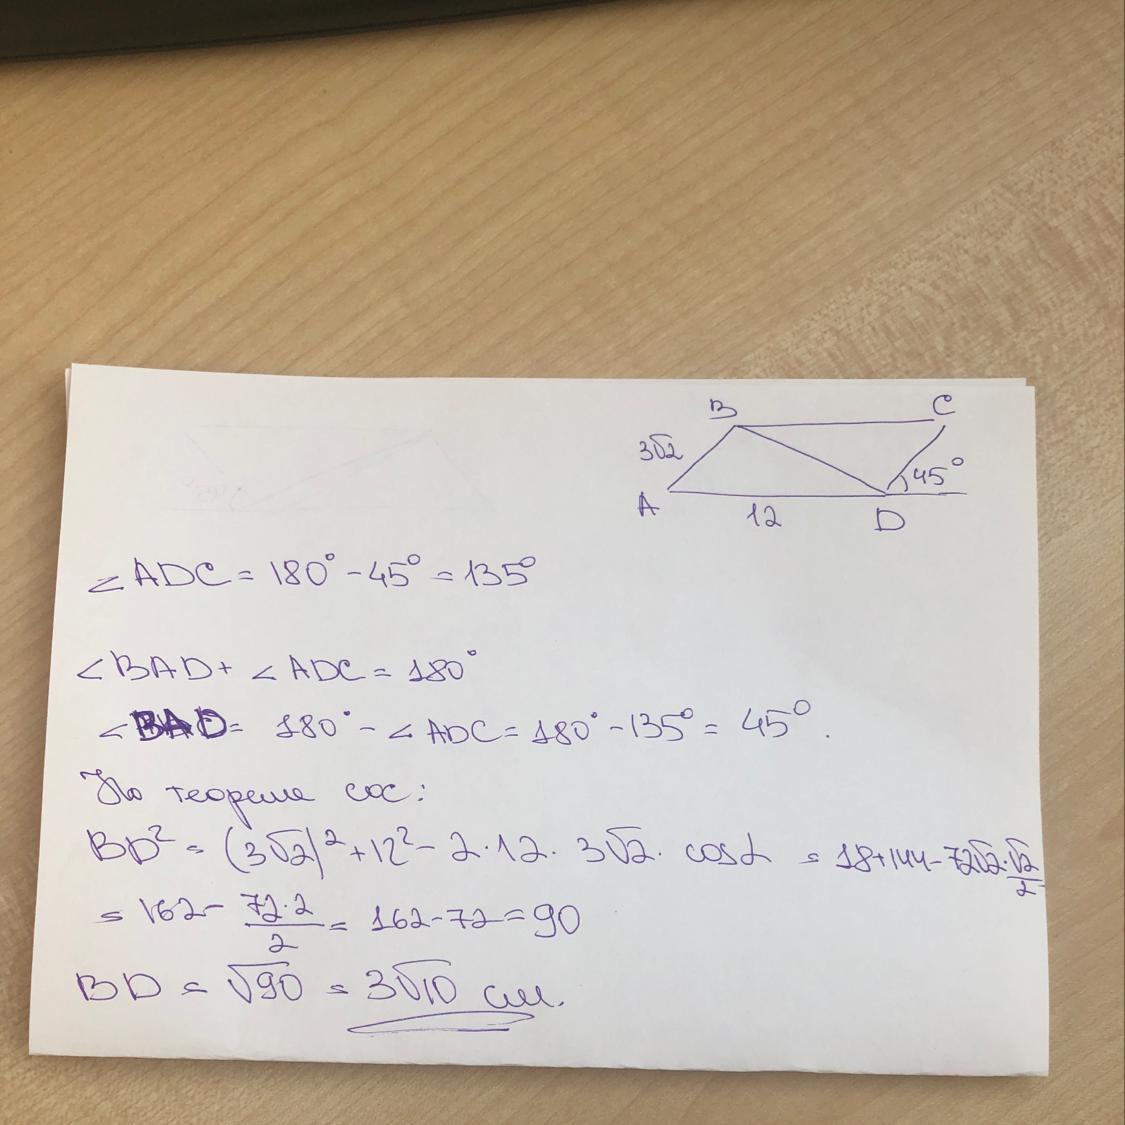 B C
3√2 45°
A 12 D
∠ADC = 180° - 45° = 135°
∠BAD + ∠ADC = 180°
∠BAD = 180° - ∠ADC = 180° - 135° = 45°.
По теореме cos:
BD² = (3√2)² + 12² - 2·12·3√2·cosα = 18+144-72√2·√2/2
= 162 - 72·2/2 = 162-72 = 90
BD = √90 = 3√10 см.